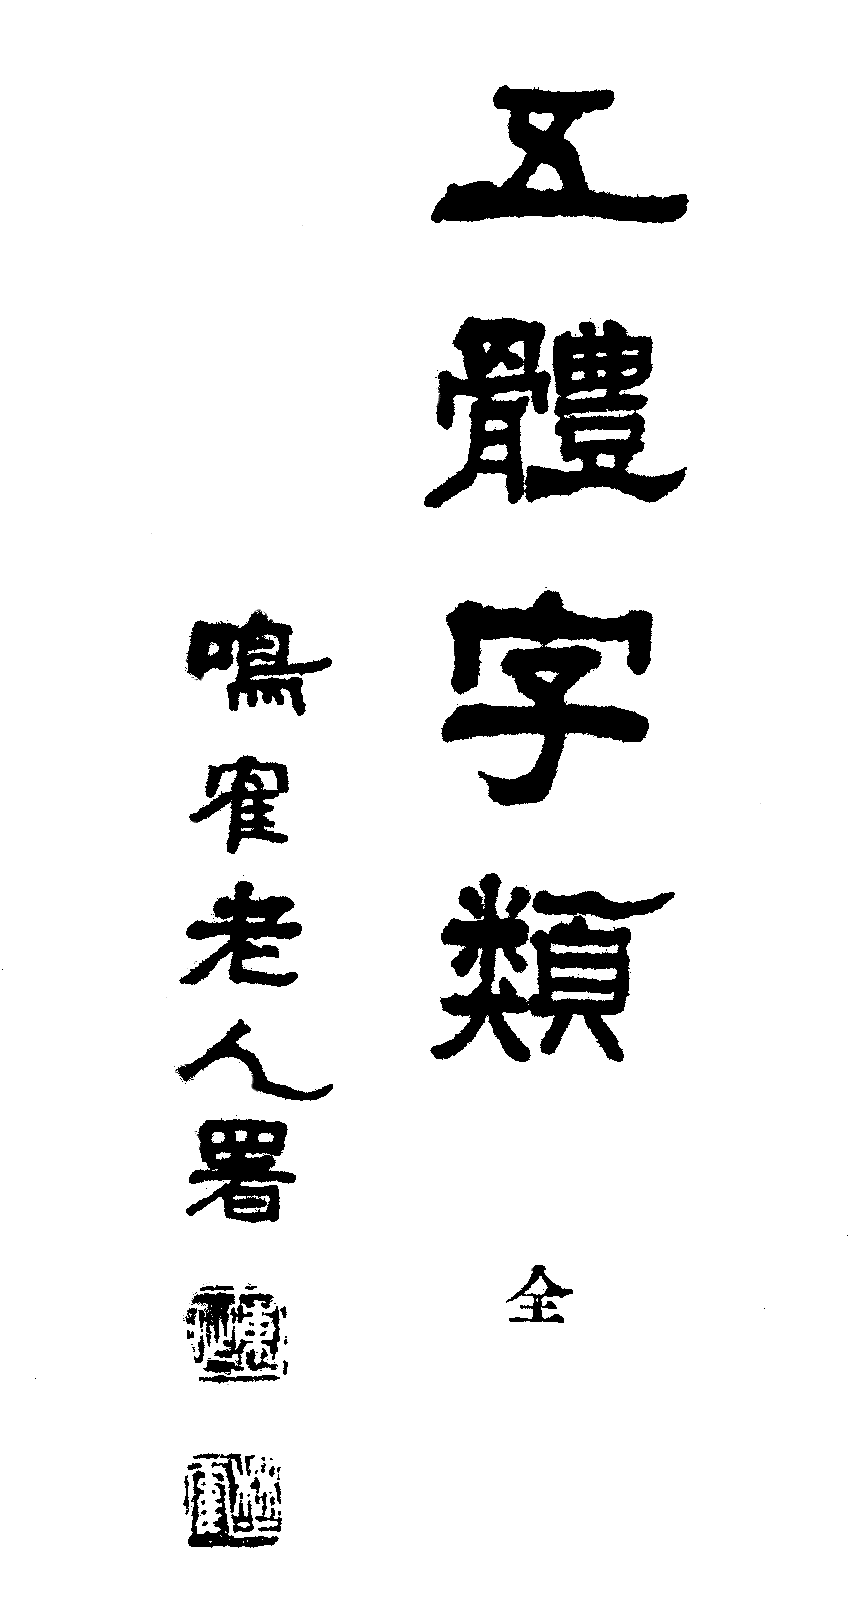 五體字類
全
鳴寉老人署